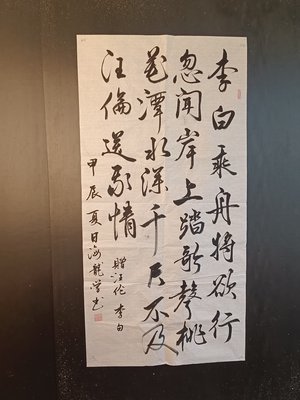 李白乘舟将欲行
忽闻岸上踏歌聲桃
花潭水深千尺不及
汪倫送我情
赠汪伦 李白
甲辰夏日海龍